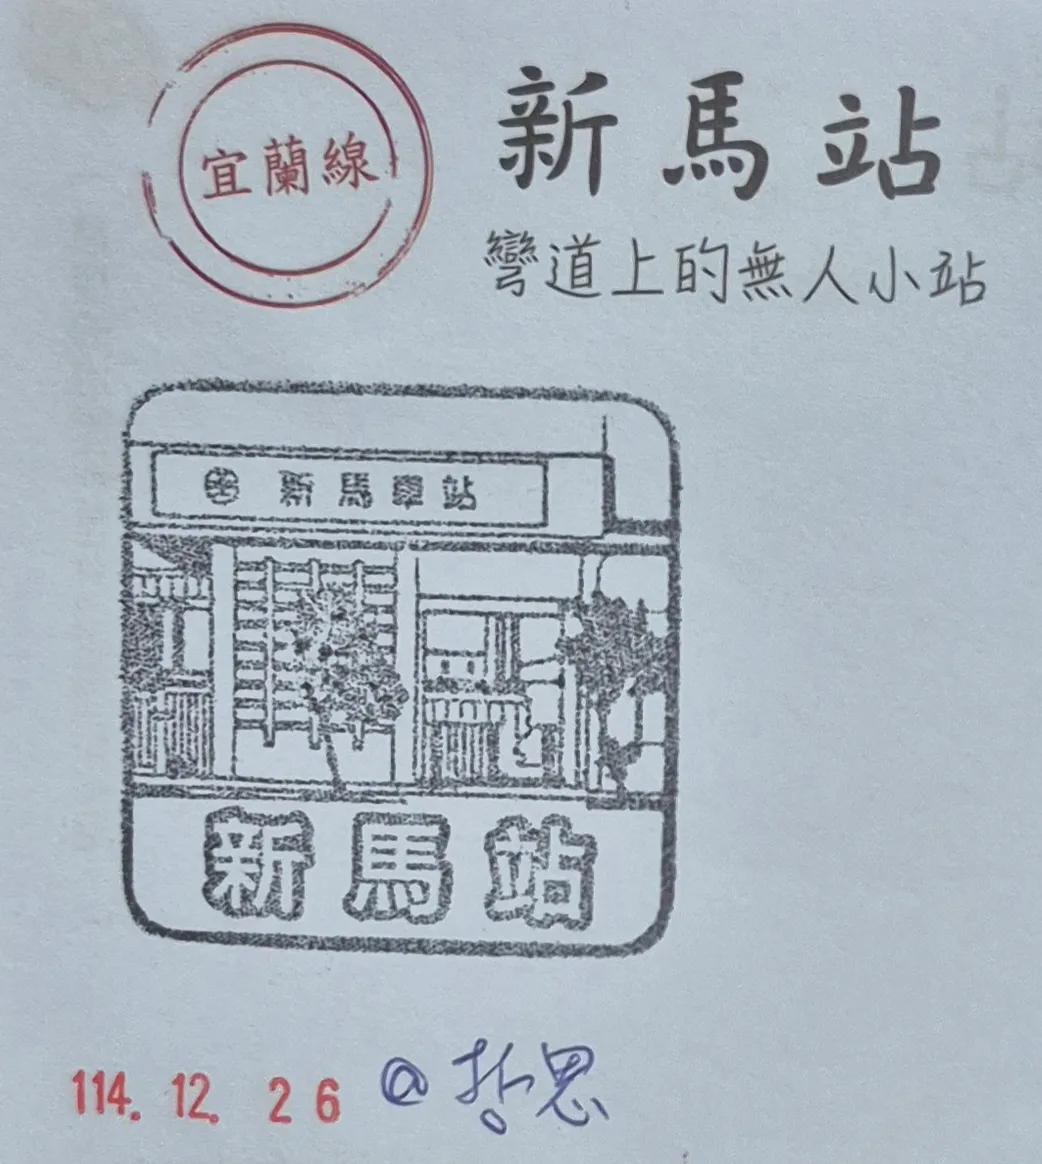 宜蘭線
新馬站
彎道上的無人小站
新馬車站
新馬站
114.12.26 @哲思